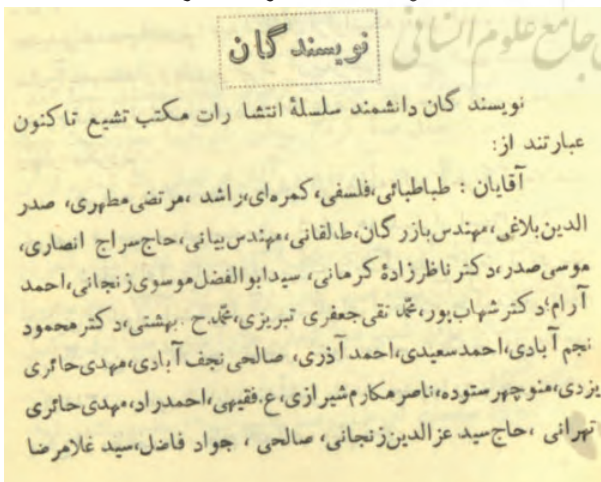 جامع علوم انسانی
نویسندگان
نویسندگان دانشمند سلسلهٔ انتشارات مکتب تشیع تاکنون
عبارتند از:
آقایان : طباطبائی،فلسفی،کمره‌ای،راشد ،مرتضی‌مطهری، صدر
الدین‌بلاغی،مهندس‌بازرگان،طالقانی،مهندس‌بیانی،حاج‌سراج انصاری،
موسی‌صدر،دکتر ناظرزادهٔ کرمانی، سیدابوالفضل‌موسوی‌زنجانی،احمد
آرام،دکتر شهاب‌پور،محمد تقی‌جعفری تبریزی،محمد.ح .بهشتی،دکترمحمود
نجم آبادی،احمدسعیدی،احمد آذری، صالحی نجف آبادی،مهدی‌حائری
یزدی،منوچهرستوده،ناصرمکارم‌شیرازی،ع.فقیهی،احمدراد،مهدی‌حائری
تهرانی ،حاج‌سید عزالدین‌زنجانی، صالحی ، جواد فاضل،سید غلامرضا